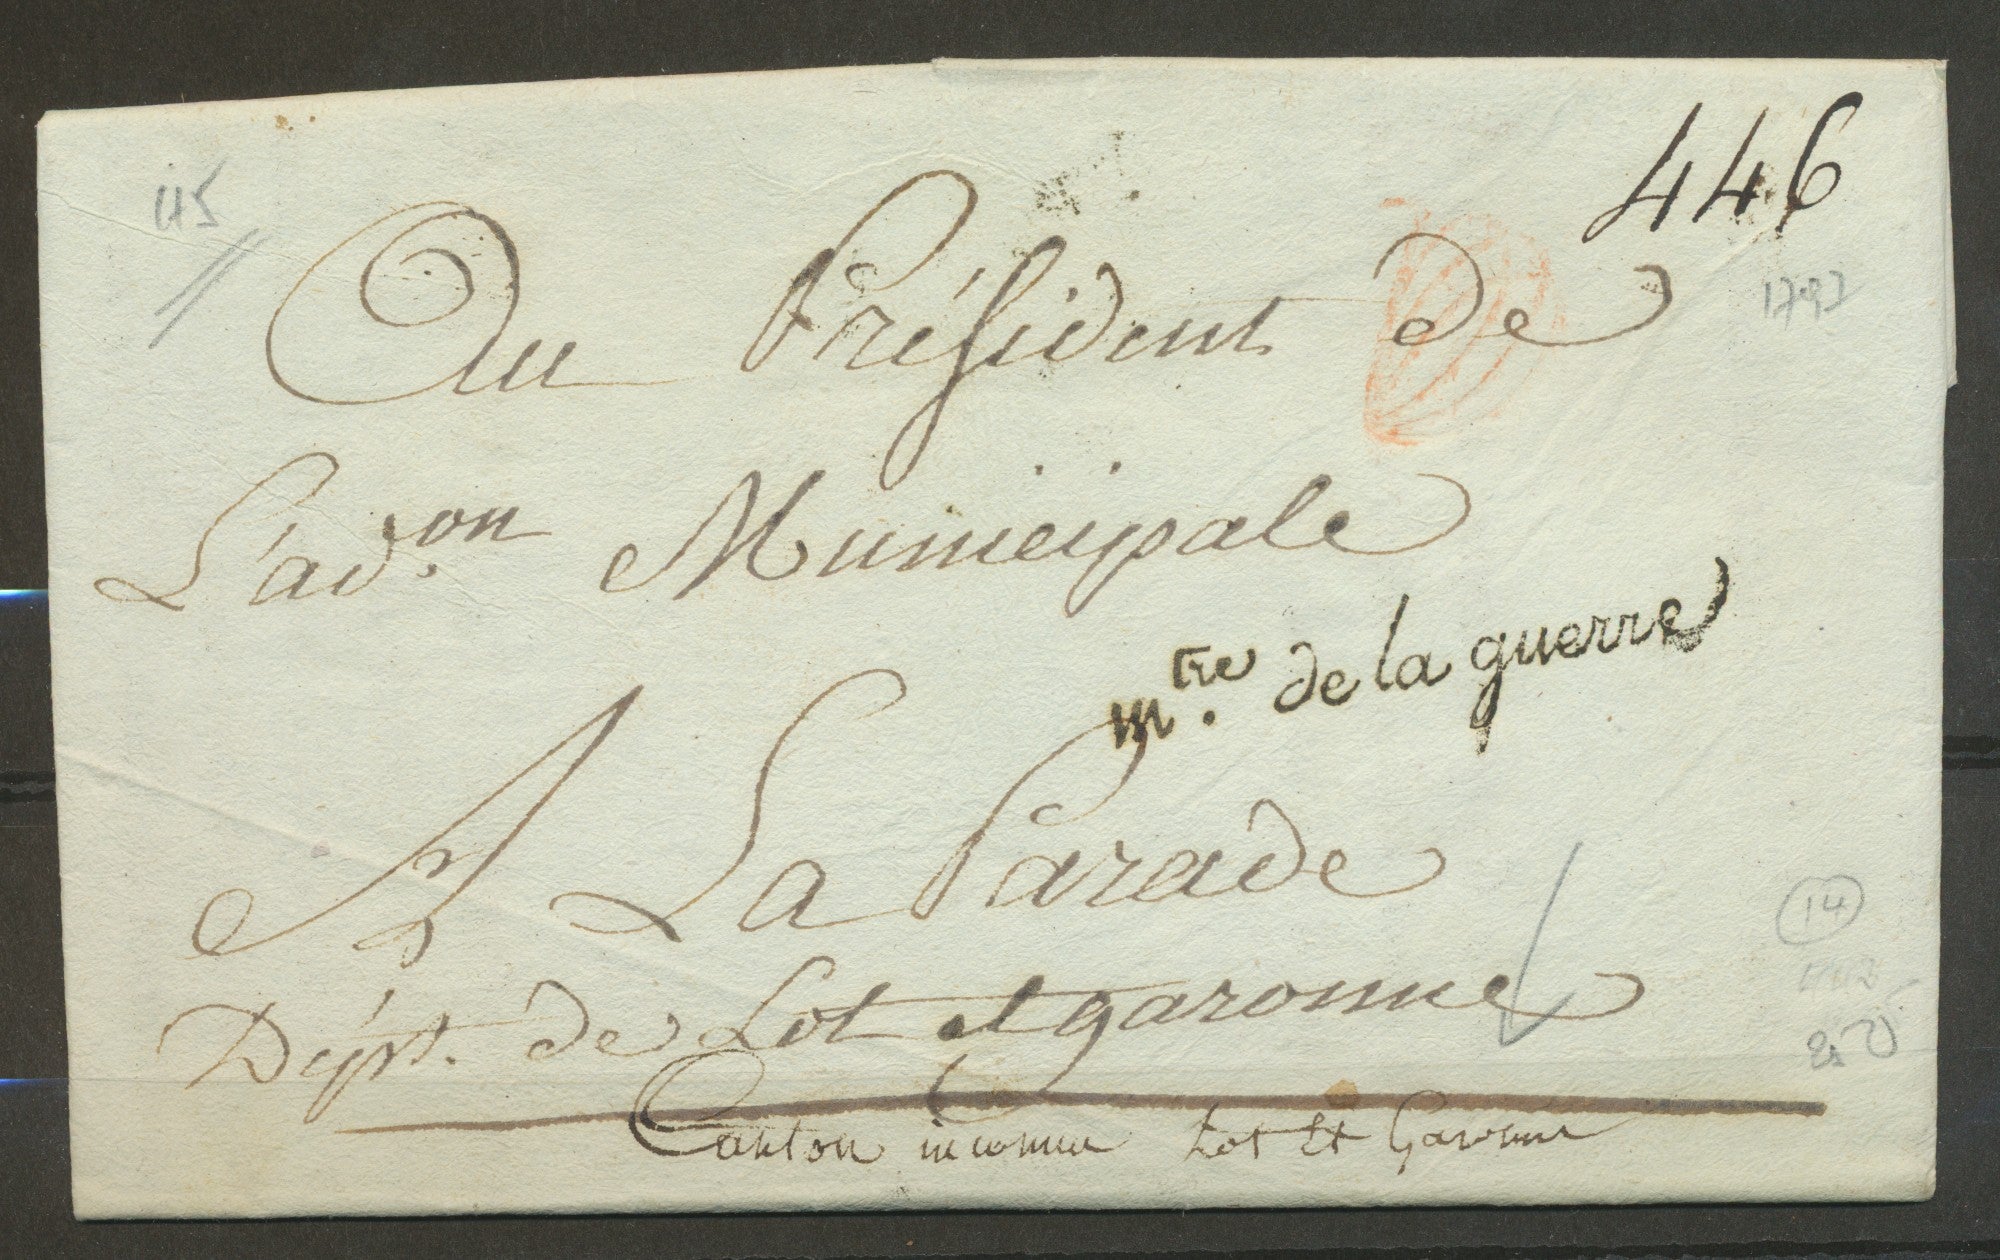 446
115
Au Président de
1793
L'ad.on Municipale
m.tre de la guerre
A La Parade
14
Dépt. de Lot et garonne
Canton inconnu Lot Et Garonne